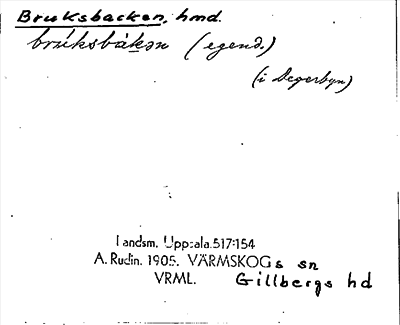 Bruksbacken, hmd.
brúksbàkən (egend.)
(i Degerbyn)
Landsm. Uppsala 517:154
A. Rudin. 1905. VÄRMSKOGs sn
VRML. Gillbergs hd